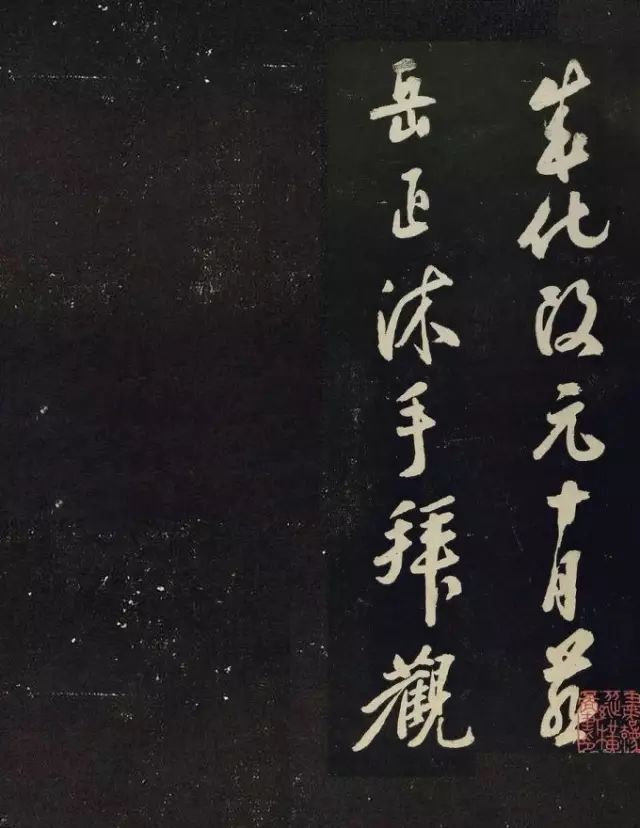 成化改元十月
岳正沐手拜觀